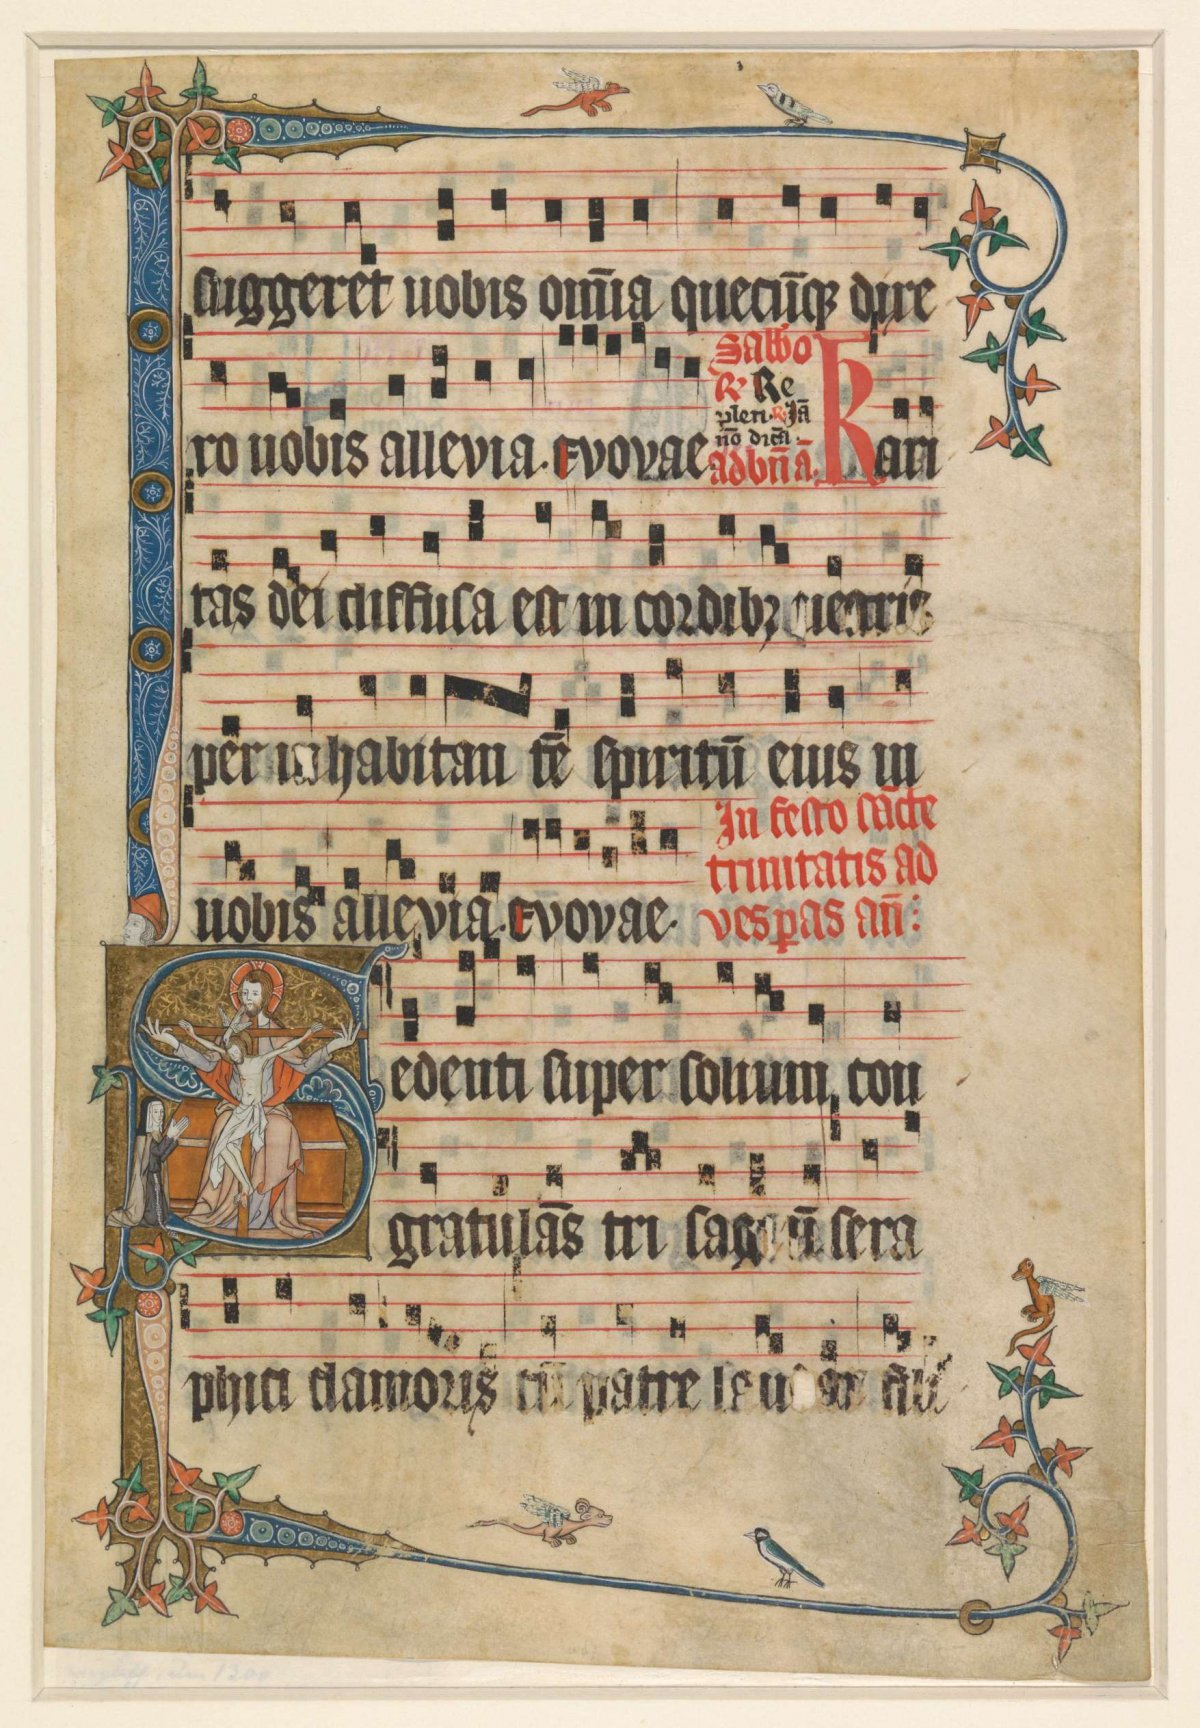 suggeret uobis om̄ia quecūq̢ dixe
ro uobis allevia· evovae
Sabb̄o
R̸ Re
pleti· R̸ Iā
nō dicā·
ad bn̄ ā·
Kari
tas dei diffusa est in cordibꝫ uestris
per inhabitan tē spiritū eius in
uobis allevia· evovae·
In festo sc̄te
trinitatis ad
vesꝑas an̄:
Sedenti super solium con
gratulās tri sagiū sera
phici clamoris cū patre